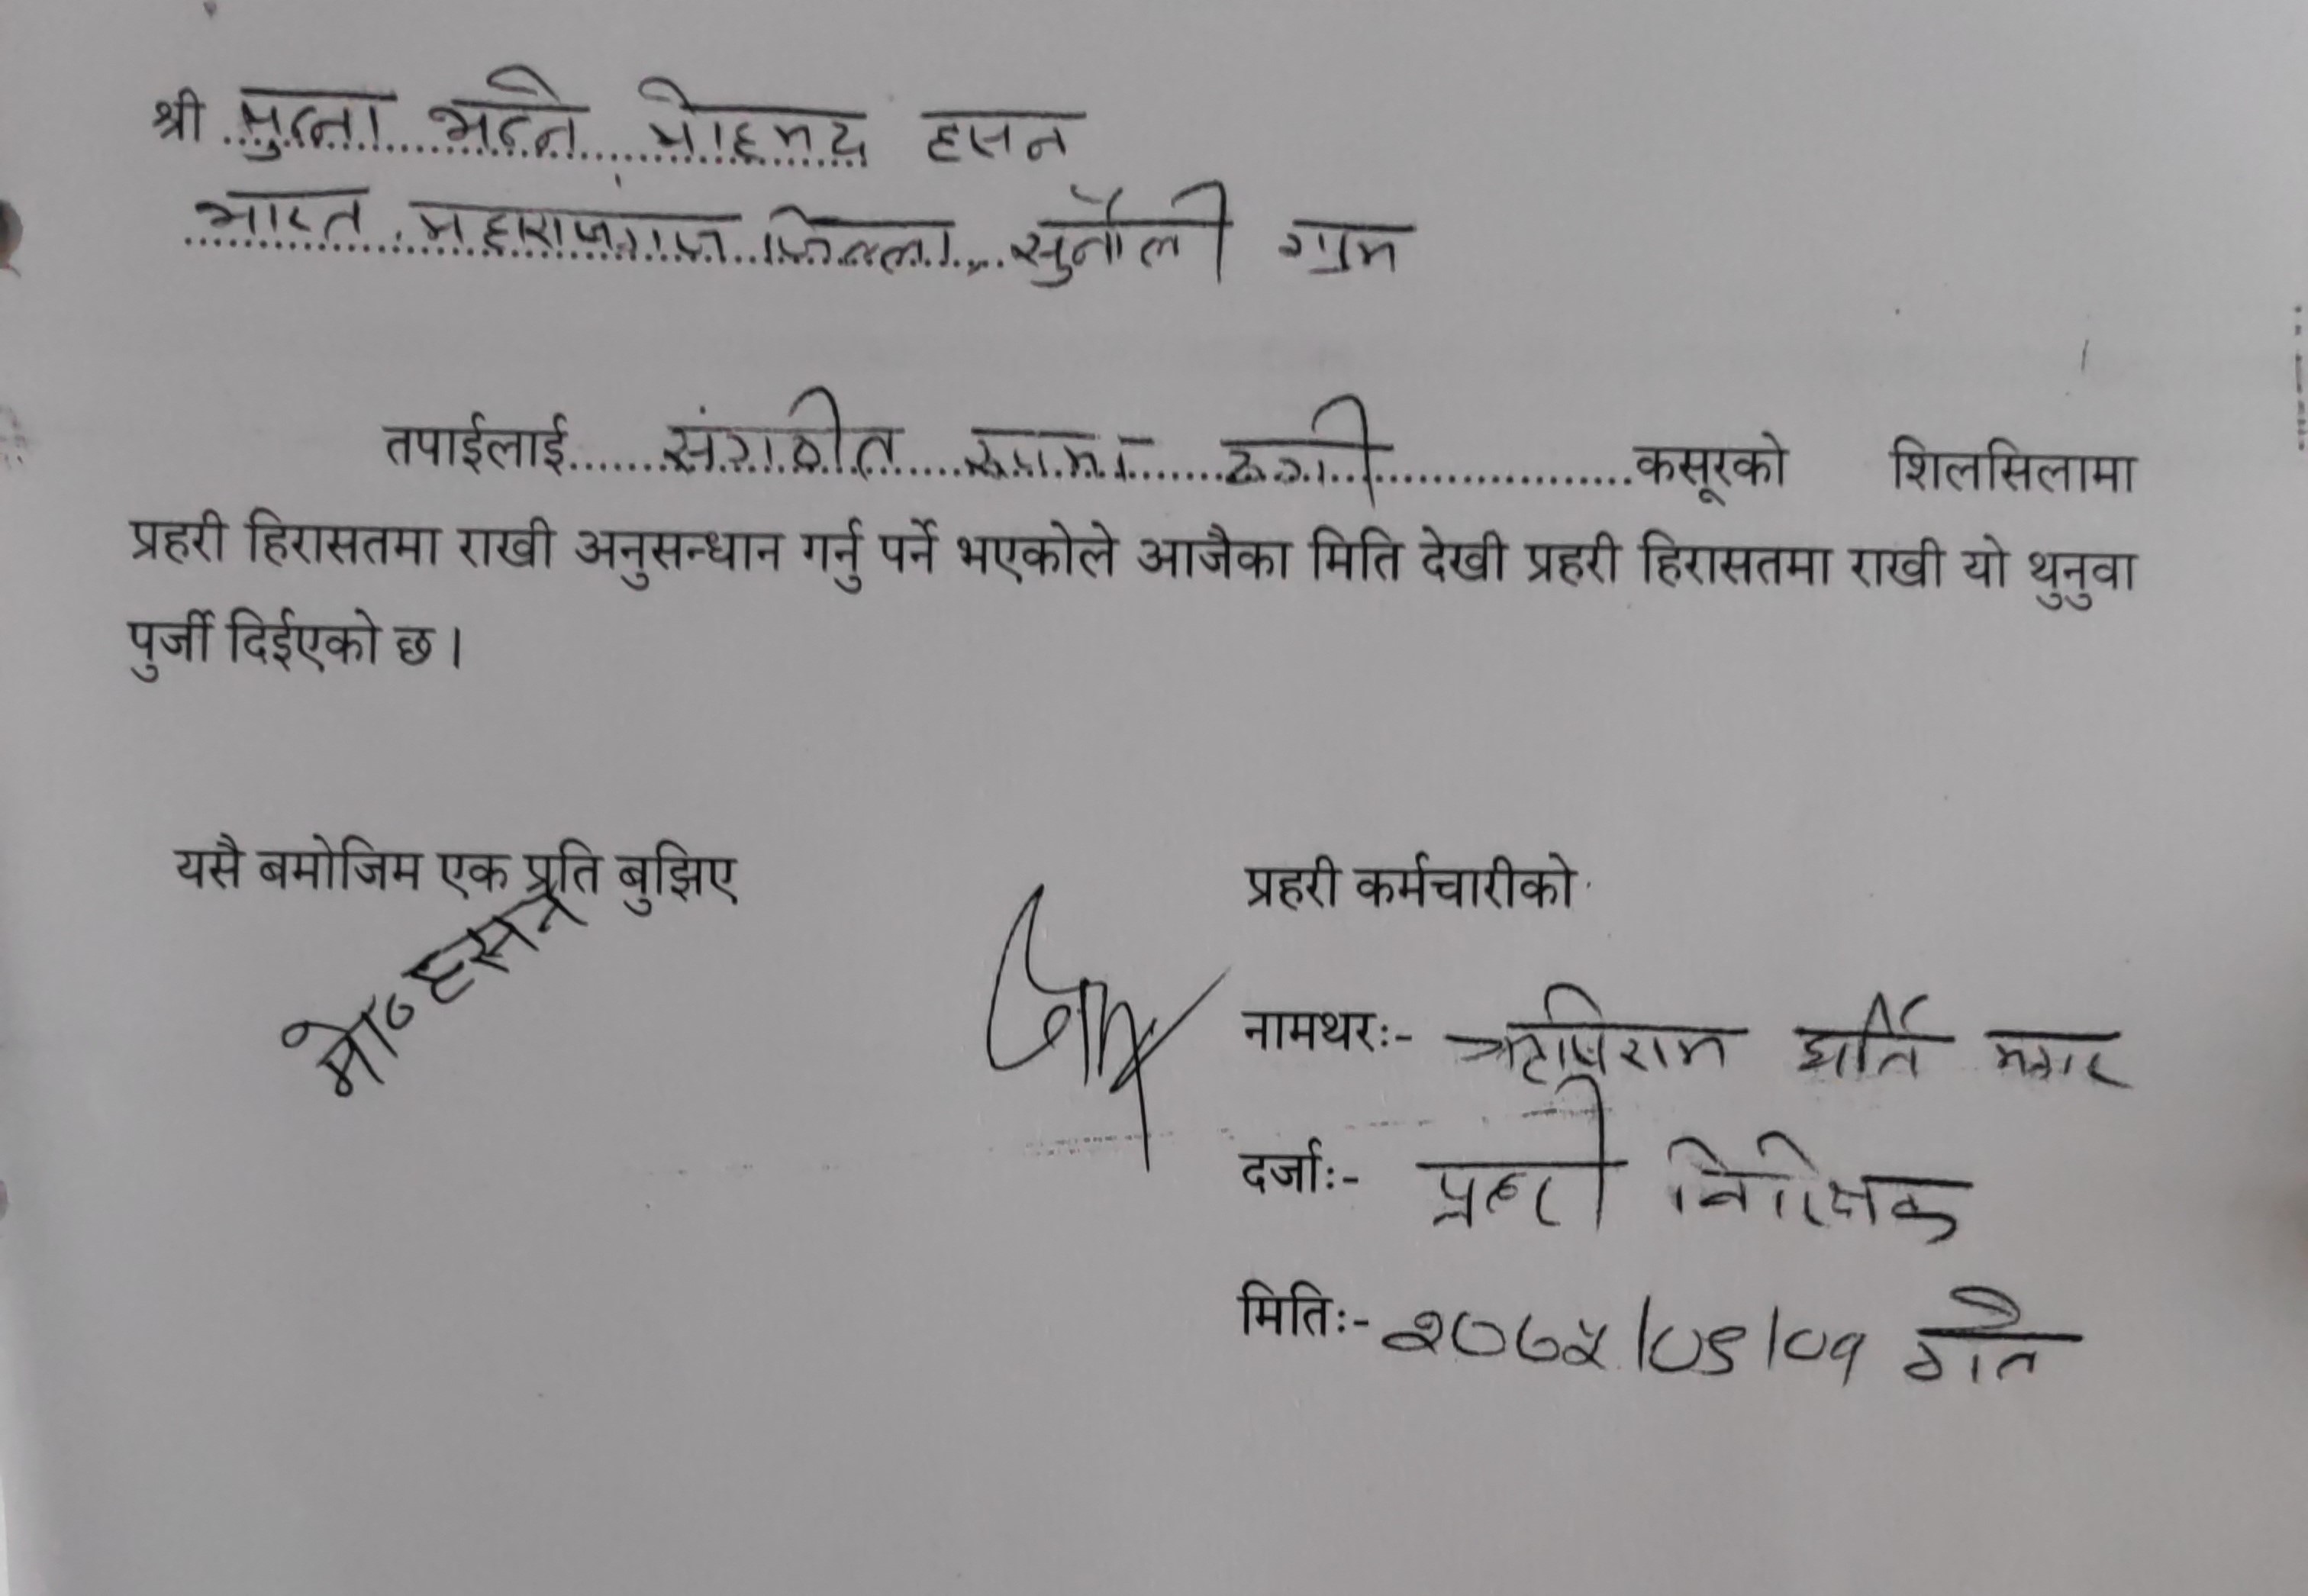 श्री मुन्ना भन्ने मोहमद हसन
भारत महाराजगंज जिल्ला सुनौली ग्राम
तपाईलाई संगठीत रुपमा ठगी कसूरको शिलसिलामा
प्रहरी हिरासतमा राखी अनुसन्धान गर्नु पर्ने भएकोले आजैका मिति देखी प्रहरी हिरासतमा राखी यो थुनुवा
पुर्जी दिईएको छ।
यसै बमोजिम एक प्रति बुझिए
मो० हसन
प्रहरी कर्मचारीको
नामथरः- ऋषिराम घर्ति मगर
दर्जाः- प्रहरी निरिक्षक
मितिः- २०७५/०९/०१ गते